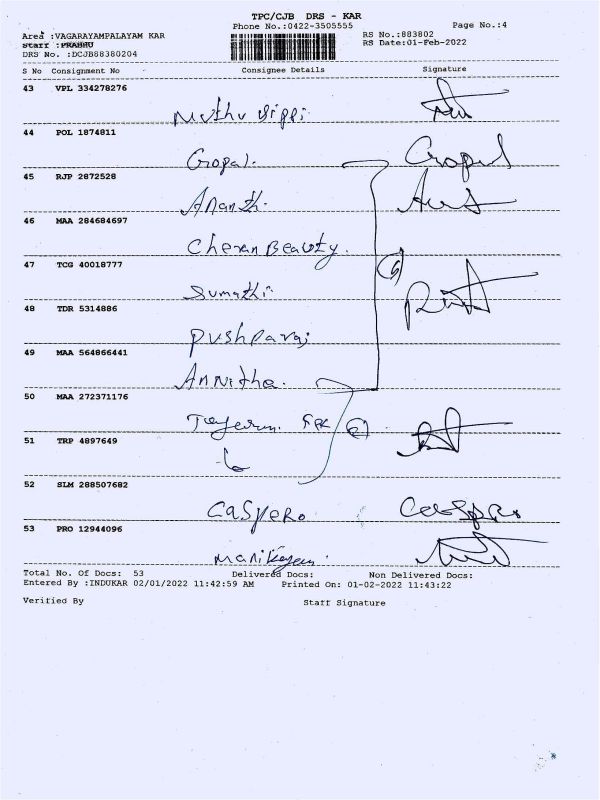 TPC/CJB DRS - KAR
Phone No.:0422-3505555
Page No.:4
Area :VAGARAYAMPALAYAM KAR
RS No.:883802
Staff :PRABHU
RS Date:01-Feb-2022
DRS No. :DCJB88380204
S No Consignment No Consignee Details Signature
43 VPL 334278276
Muthu
44 POL 1874811
Gopal. Gopal
45 RJP 2872528
Ananth.
46 MAA 284684697
Cheran Beauty.
47 TCG 40018777
Sumathi.
48 TDR 5314886
Pushparaj
49 MAA 564866441
Annitha.
50 MAA 272371176
51 TRP 4897649
52 SLM 288507682
Caspero
53 PRO 12944096
Total No. Of Docs: 53 Delivered Docs: Non Delivered Docs:
Entered By :INDUKAR 02/01/2022 11:42:59 AM Printed On: 01-02-2022 11:43:22
Verified By Staff Signature